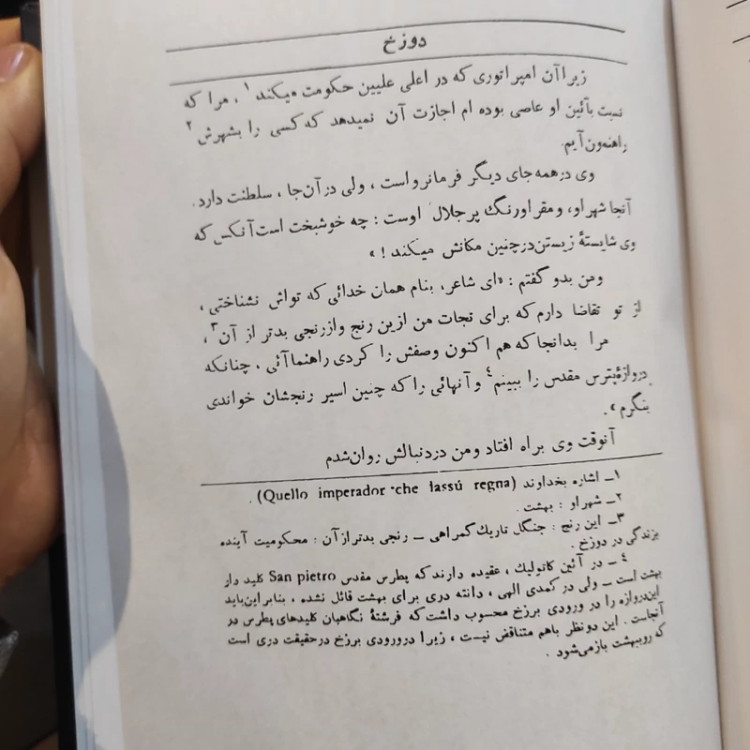 دوزخ
زیرا آن امپراتوری که در اعلی علیین حکومت میکند۱ ، مرا که
نسبت بآئین او عاصی بوده ام اجازت آن نمیدهد که کسی را بشهرش۲
راهنمون آیم.
وی در همه جای دیگر فرمانرواست ، ولی در آن جا ، سلطنت دارد.
آنجا شهر او، و مقر اورنگ پر جلال اوست : چه خوشبخت است آنکس که
وی شایستهٔ زیستن در چنین مکانش میکند ! »
ومن بدو گفتم : «ای شاعر، بنام همان خدائی که تواش نشناختی ،
از تو تقاضا دارم که برای نجات من ازین رنج و از رنجی بدتر از آن۳ ،
مرا بدانجا که هم اکنون وصفش را کردی راهنما آئی ، چنانکه
دروازهٔ پترس مقدس را ببینم۴ و آنهائی را که چنین اسیر رنجشان خواندی
بنگرم» .
آنوقت وی براه افتاد ومن در دنبالش روان شدم
۱ــ اشاره بخداوند (Quello imperador che lassú regna) .
۲ــ شهر او : بهشت .
۳ــ این رنج : جنگل تاریک گمراهی ــ رنجی بدتر از آن : محکومیت آینده
بزندگی در دوزخ .
٤ ــ در آئین کاتولیک ، عقیده دارند که پطرس مقدس San pietro کلید دار
بهشت است ــ ولی در کمدی الهی ، دانته دری برای بهشت قائل نشده ، بنابر این باید
این دروازه را در ورودی برزخ محسوب داشت که فرشتهٔ نگاهبان کلیدهای پطرس در
آنجاست . این دو نظر باهم متناقض نیست ، زیرا در ورودی برزخ در حقیقت دری است
که رو ببهشت باز می‌شود .